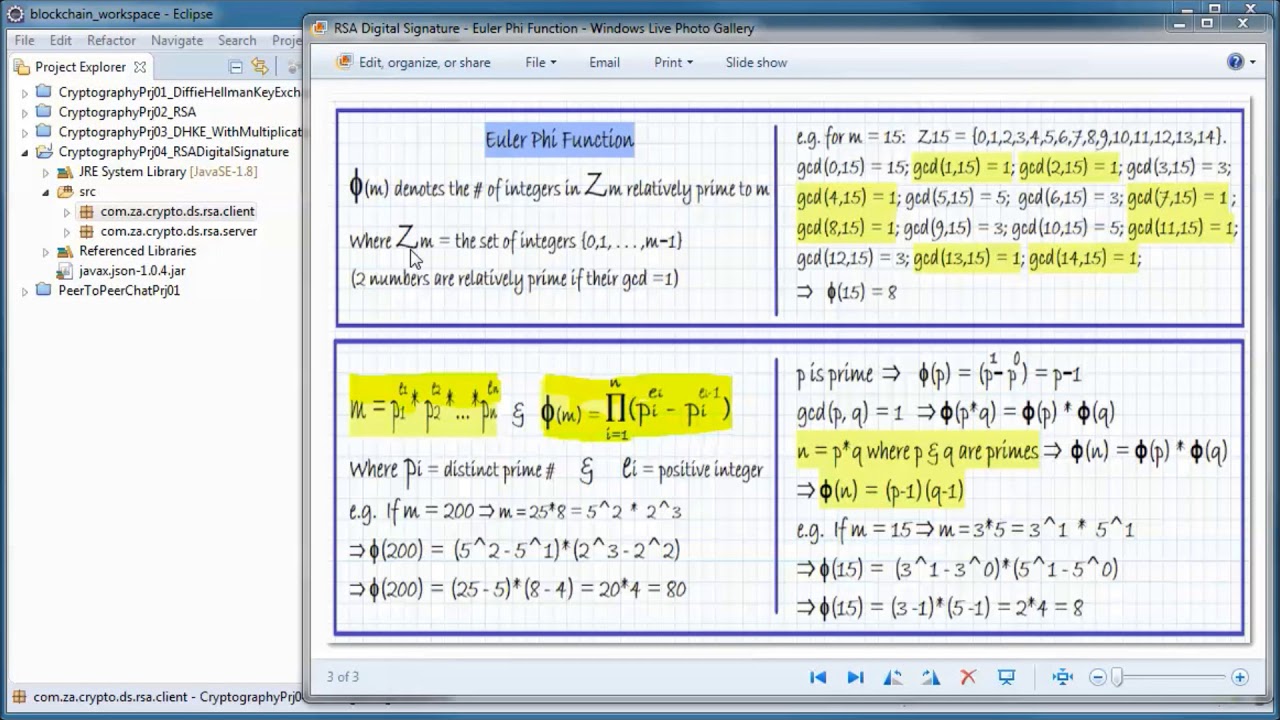 blockchain_workspace - Eclipse
File Edit Refactor Navigate Search Proje
Project Explorer
CryptographyPrj01_DiffieHellmanKeyExch
CryptographyPrj02_RSA
CryptographyPrj03_DHKE_WithMultiplicat
CryptographyPrj04_RSADigitalSignature
JRE System Library [JavaSE-1.8]
src
com.za.crypto.ds.rsa.client
com.za.crypto.ds.rsa.server
Referenced Libraries
javax.json-1.0.4.jar
PeerToPeerChatPrj01
com.za.crypto.ds.rsa.client - CryptographyPrj0
RSA Digital Signature - Euler Phi Function - Windows Live Photo Gallery
Edit, organize, or share File Email Print Slide show
Euler Phi Function
ϕ(m) denotes the # of integers in Zm relatively prime to m
Where Zm = the set of integers {0,1, . . . ,m-1}
(2 numbers are relatively prime if their gcd =1)
e.g. for m = 15: Z15 = {0,1,2,3,4,5,6,7,8,9,10,11,12,13,14}.
gcd(0,15) = 15; gcd(1,15) = 1; gcd(2,15) = 1; gcd(3,15) = 3;
gcd(4,15) = 1; gcd(5,15) = 5; gcd(6,15) = 3; gcd(7,15) = 1 ;
gcd(8,15) = 1; gcd(9,15) = 3; gcd(10,15) = 5; gcd(11,15) = 1;
gcd(12,15) = 3; gcd(13,15) = 1; gcd(14,15) = 1;
⇒ ϕ(15) = 8
m = p1^e1 * p2^e2 * ... * pn^en & ϕ(m) = ∏ i=1 n (pi^ei - pi^ei-1)
Where pi = distinct prime # & ei = positive integer
e.g. If m = 200 ⇒ m = 25*8 = 5^2 * 2^3
⇒ ϕ(200) = (5^2 - 5^1)*(2^3 - 2^2)
⇒ ϕ(200) = (25 - 5)*(8 - 4) = 20*4 = 80
p is prime ⇒ ϕ(p) = (p^1 - p^0) = p-1
gcd(p, q) = 1 ⇒ ϕ(p*q) = ϕ(p) * ϕ(q)
n = p*q where p & q are primes ⇒ ϕ(n) = ϕ(p) * ϕ(q)
⇒ ϕ(n) = (p-1)(q-1)
e.g. If m = 15 ⇒ m = 3*5 = 3^1 * 5^1
⇒ ϕ(15) = (3^1 - 3^0)*(5^1 - 5^0)
⇒ ϕ(15) = (3 -1)*(5 -1) = 2*4 = 8
3 of 3